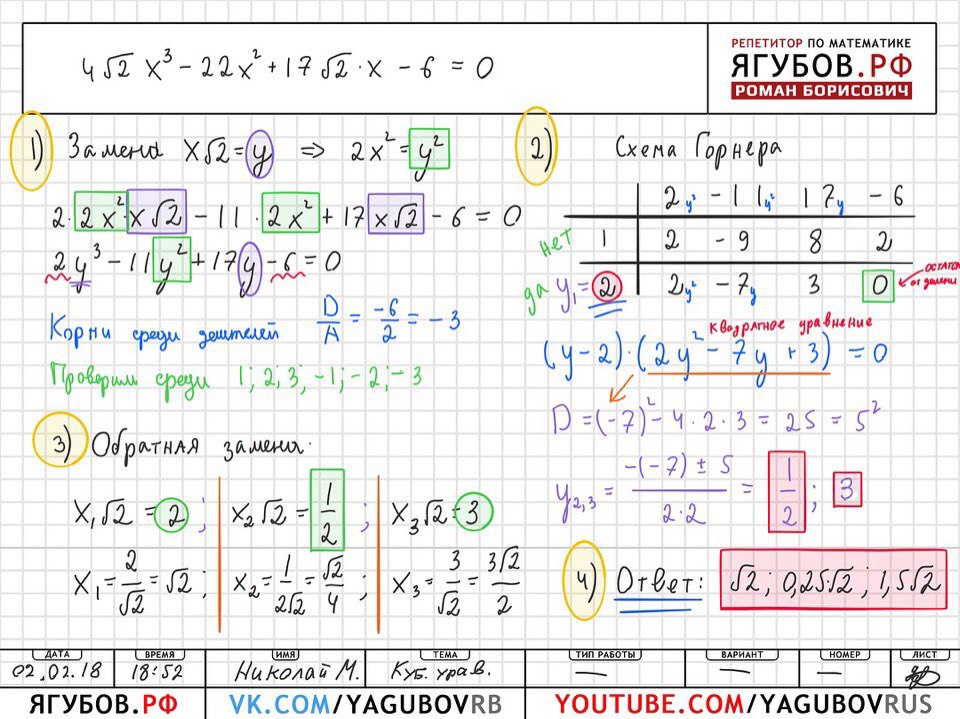 4√2 x³ − 22x² + 17√2 · x − 6 = 0
РЕПЕТИТОР ПО МАТЕМАТИКЕ
ЯГУБОВ.РФ
РОМАН БОРИСОВИЧ
1) Замена x√2 = y ⇒ 2x² = y²
2 · 2x² · x√2 − 11 · 2x² + 17 x√2 − 6 = 0
2y³ − 11y² + 17y − 6 = 0
Корни среди делителей D/A = −6/2 = −3
Проверим среди 1; 2; 3; −1; −2; −3
2) Схема Горнера
2y³ − 11y² 17y − 6
нет 1 2 − 9 8 2
да y₁ = 2 2y² − 7y 3 0 ← остаток от деления
квадратное уравнение
(y − 2) · (2y² − 7y + 3) = 0
D = (−7)² − 4 · 2 · 3 = 25 = 5²
y₂,₃ = (−(−7) ± 5)/(2 · 2) = 1/2 ; 3
3) Обратная замена:
x₁√2 = 2 ; x₂√2 = 1/2 ; x₃√2 = 3
x₁ = 2/√2 = √2 ; x₂ = 1/2√2 = √2/4 ; x₃ = 3/√2 = 3√2/2
4) Ответ: √2 ; 0,25√2 ; 1,5√2
ДАТА ВРЕМЯ ИМЯ ТЕМА ТИП РАБОТЫ ВАРИАНТ НОМЕР ЛИСТ
02.02.18 18:52 Николай М. Куб. урав. — — —
ЯГУБОВ.РФ VK.COM/YAGUBOVRB YOUTUBE.COM/YAGUBOVRUS